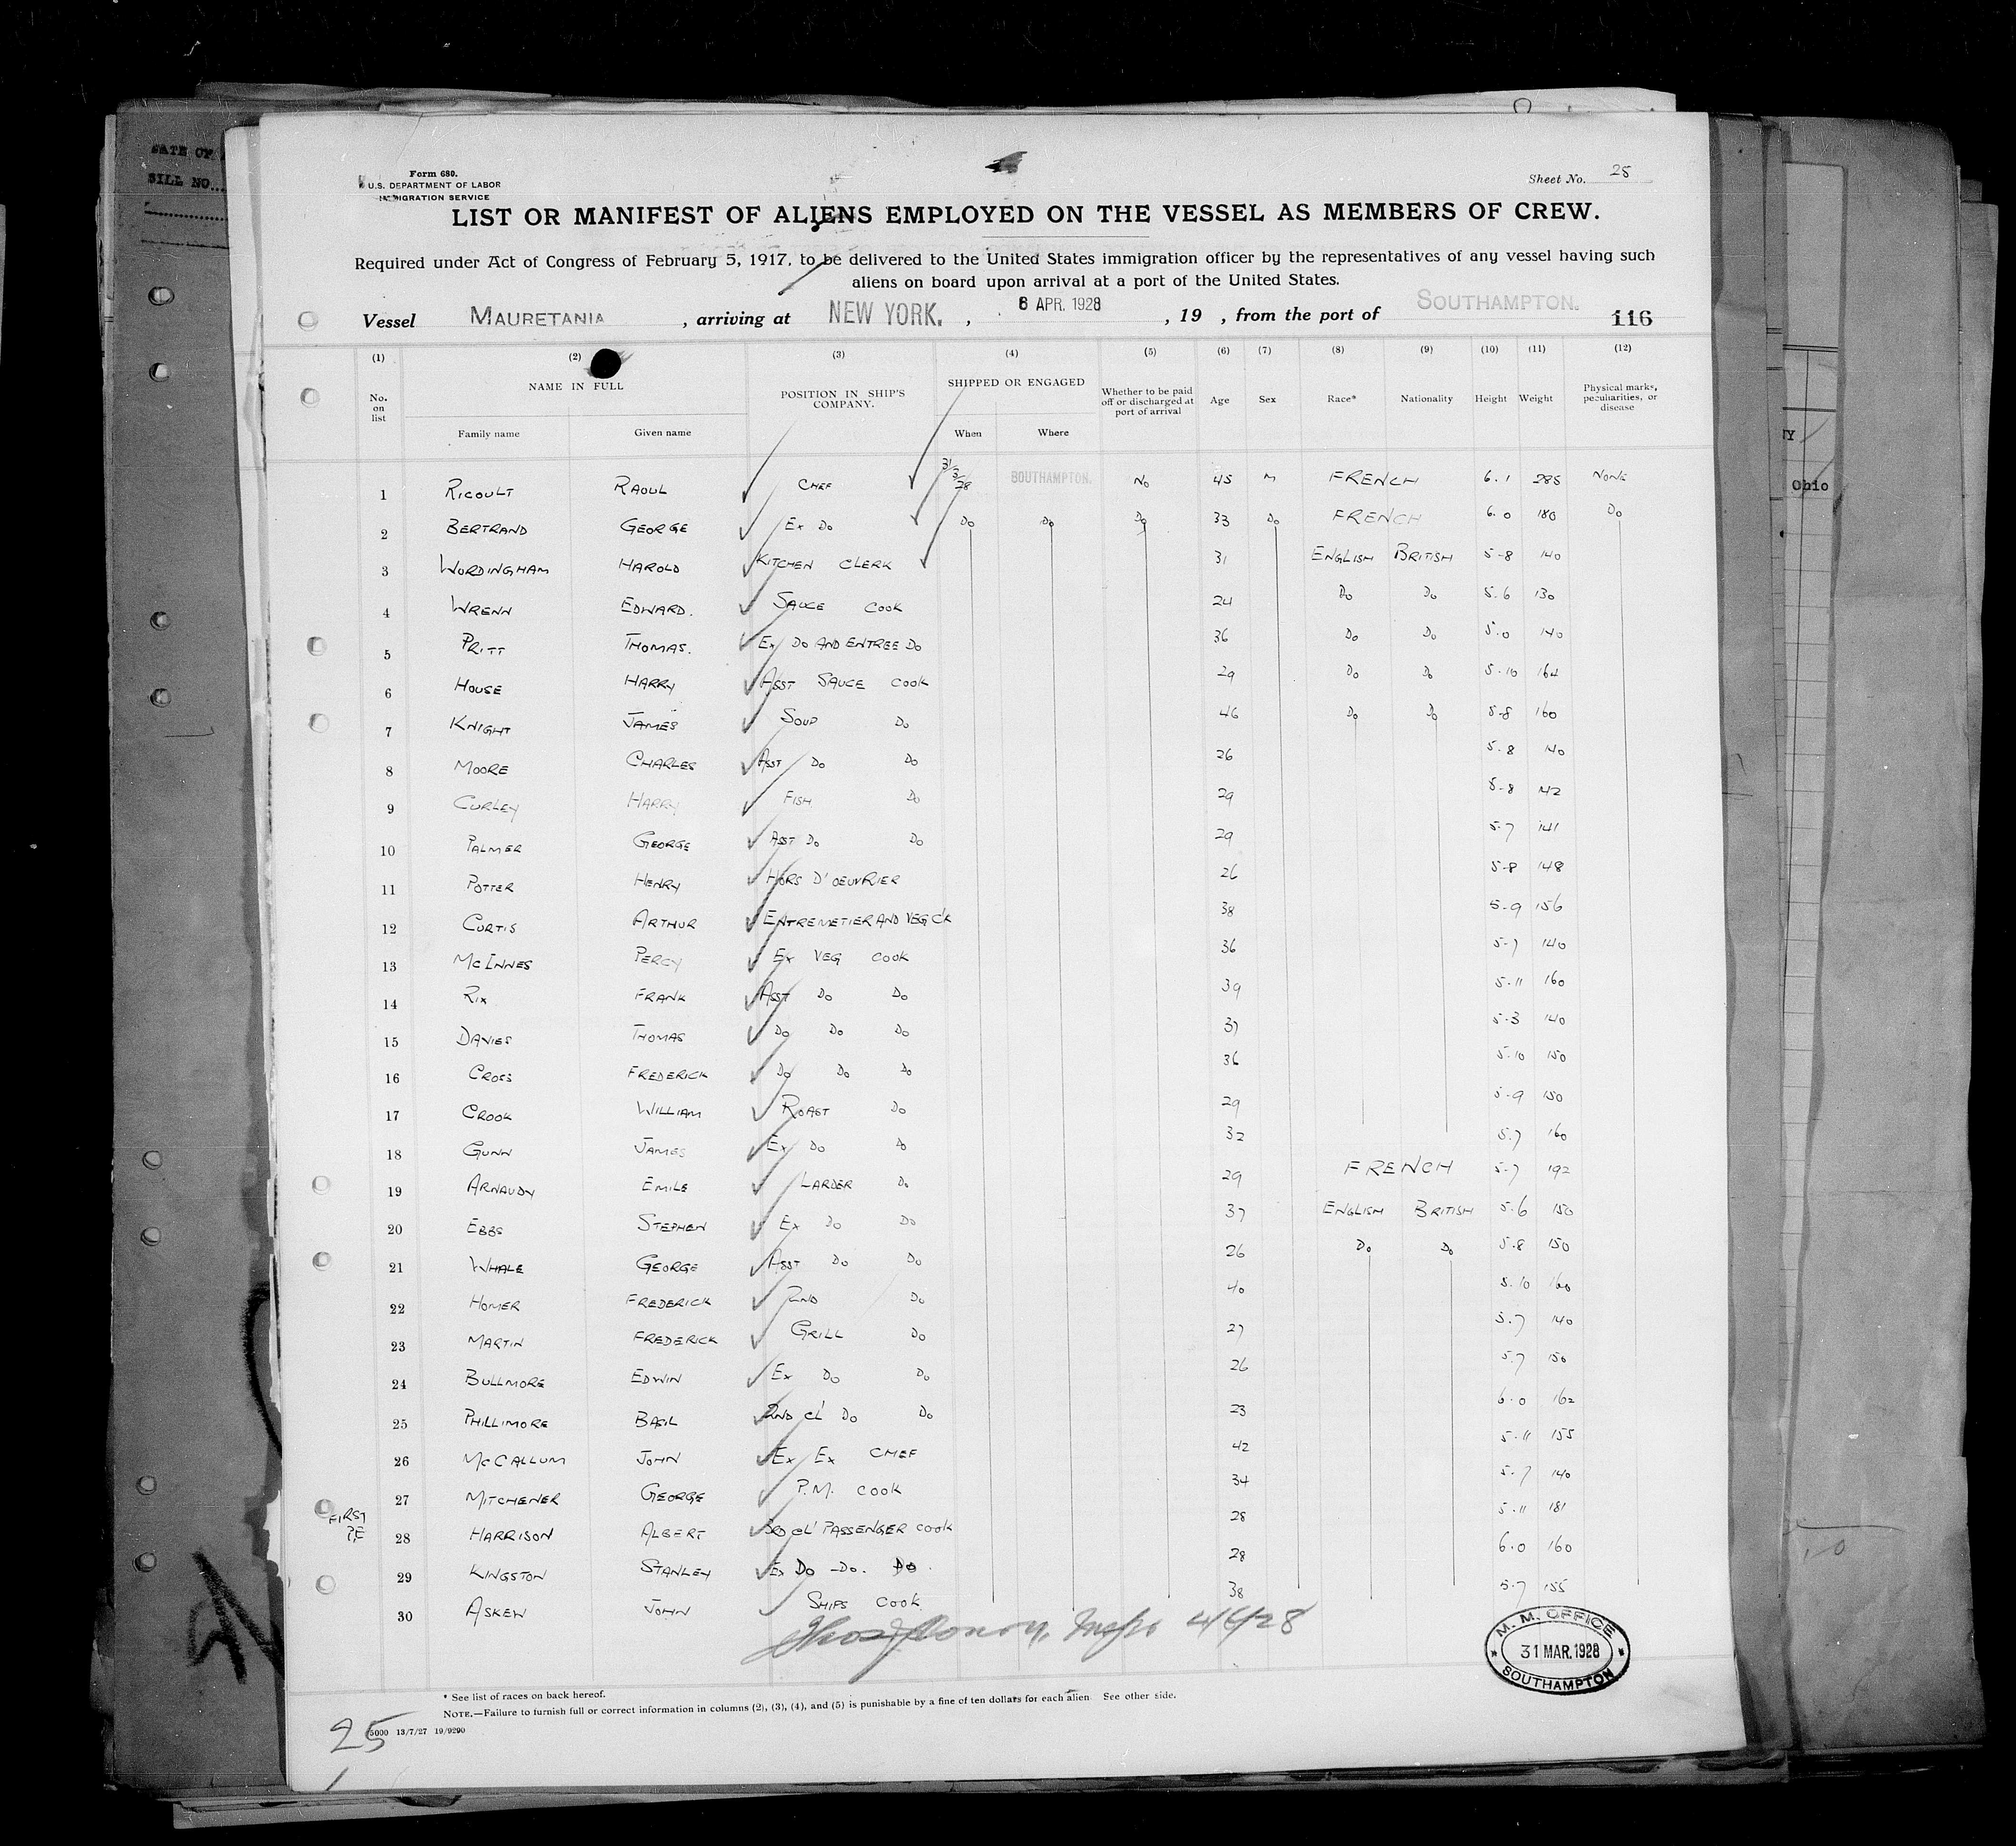 DATE OF
BILL NO...
Form 680.
U.S. DEPARTMENT OF LABOR
IMMIGRATION SERVICE
Sheet No. 25
LIST OR MANIFEST OF ALIENS EMPLOYED ON THE VESSEL AS MEMBERS OF CREW.
Required under Act of Congress of February 5, 1917, to be delivered to the United States immigration officer by the representatives of any vessel having such
aliens on board upon arrival at a port of the United States.
Vessel MAURETANIA , arriving at NEW YORK. , 6 APR. 1928 , 19 , from the port of SOUTHAMPTON. 116
(1) (2) (3) (4) (5) (6) (7) (8) (9) (10) (11) (12)
No. on list NAME IN FULL POSITION IN SHIP'S COMPANY. SHIPPED OR ENGAGED Whether to be paid off or discharged at port of arrival Age Sex Race* Nationality Height Weight Physical marks, peculiarities, or disease
Family name Given name When Where
1 RICOULT RAOUL CHEF 31/3/28 SOUTHAMPTON. No 45 M FRENCH 6.1 285 NONE
2 BERTRAND GEORGE Ex Do Do Do Do 33 Do FRENCH 6.0 180 Do
3 WORDINGHAM HAROLD KITCHEN CLERK 31 ENGLISH BRITISH 5-8 140
4 WRENN EDWARD. SAUCE COOK 24 Do Do 5.6 130
5 PRITT THOMAS. Ex Do AND ENTREE Do 36 Do Do 5.0 140
6 HOUSE HARRY ASST SAUCE COOK 29 Do Do 5.10 164
7 KNIGHT JAMES SOUP Do 46 Do Do 5-8 160
8 MOORE CHARLES ASST Do Do 26 5.8 140
9 CURLEY HARRY FISH Do 29 5-8 142
10 PALMER GEORGE ASST Do Do 29 5.7 141
11 POTTER HENRY HORS D'OEUVRIER 26 5-8 148
12 CURTIS ARTHUR ENTREMETIER AND VEG CK 38 5-9 156
13 McINNES PERCY Ex VEG COOK 36 5-7 140
14 RIX FRANK ASST Do Do 39 5.11 160
15 DAVIES THOMAS Do Do Do 37 5.3 140
16 CROSS FREDERICK Do Do Do 36 5.10 150
17 CROOK WILLIAM ROAST Do 29 5-9 150
18 GUNN JAMES Ex Do Do 32 5.7 160
19 ARNAUDY EMILE LARDER Do 29 FRENCH 5-7 192
20 EBBS STEPHEN Ex Do Do 37 ENGLISH BRITISH 5.6 150
21 WHALE GEORGE ASST Do Do 26 Do Do 5.8 150
22 HOMER FREDERICK 2ND Do 40 5.10 160
23 MARTIN FREDERICK GRILL Do 27 5.7 140
24 BULLMORE EDWIN Ex Do Do 26 5.7 150
25 PHILLIMORE BASIL 2ND CL Do Do 23 6.0 162
26 McCALLUM JOHN Ex Ex CHEF 42 5.11 155
27 MITCHENER GEORGE P.M. COOK 34 5.7 140
FIRST
28 HARRISON ALBERT 3RD CL PASSENGER COOK 28 5.11 181
29 KINGSTON STANLEY Ex Do -Do. Do. 28 6.0 160
30 ASKEW JOHN SHIPS COOK 38 5.7 155
4/6/28
M. M. OFFICE
31 MAR. 1928
SOUTHAMPTON
* See list of races on back hereof.
NOTE.—Failure to furnish full or correct information in columns (2), (3), (4), and (5) is punishable by a fine of ten dollars for each alien. See other side.
5000 13/7/27 19/9290
25
Ohio